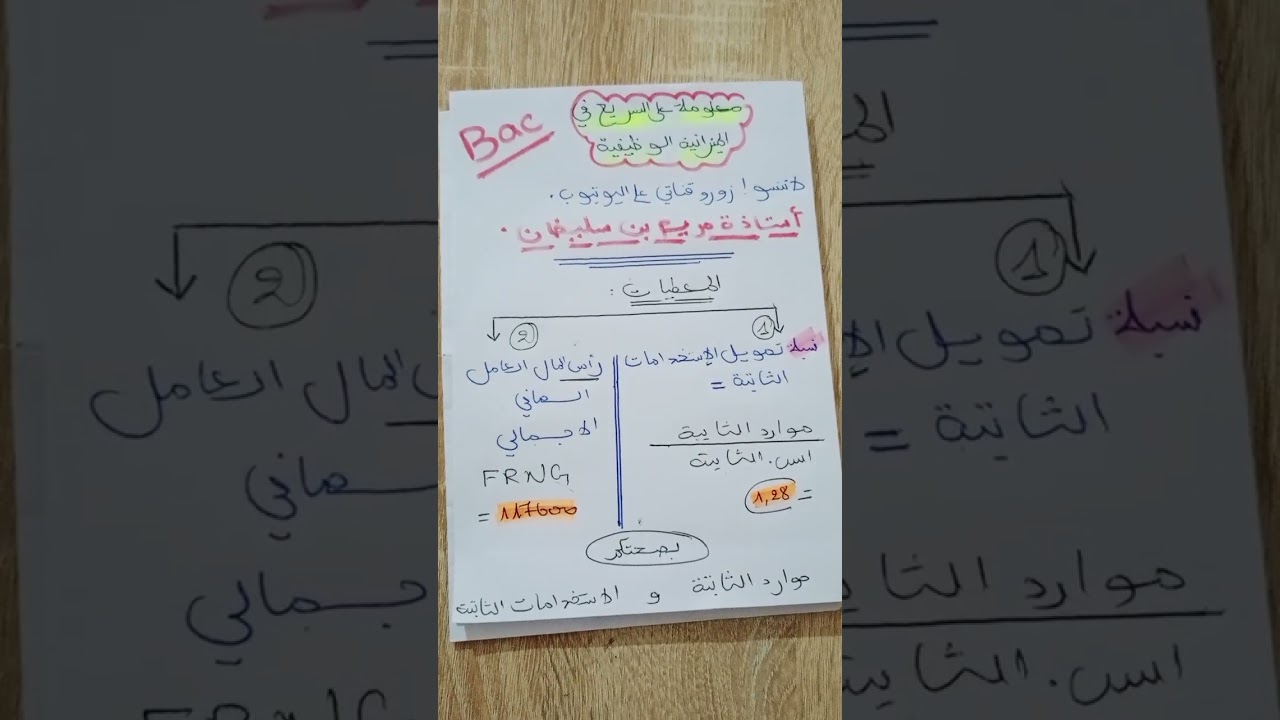 معلومة على السريع في
الميزانية الوظيفية
Bac
لا تنسو! زورو قناتي على اليوتيوب.
أستاذة مريم بن سليمان.
المعطيات:
1
نسبة تمويل الاستخدامات
الثابتة =
موارد الثابتة
اس. الثابتة
= 1,28
2
رأس المال العامل
الصافي
الاجمالي
FRNG
= 117600
بصحتكم
موارد الثابتة و الاستخدامات الثابتة